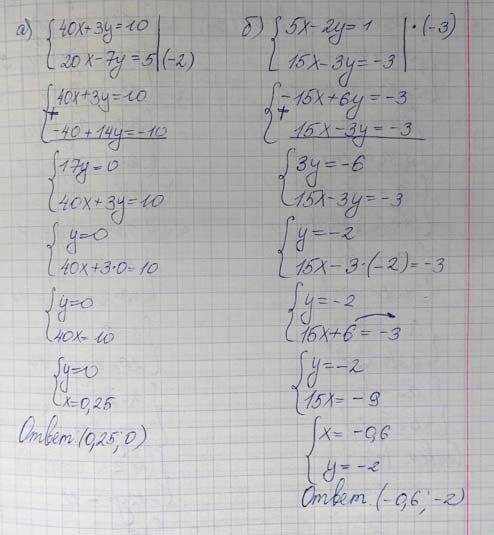 а) { 40x+3y=10
20x-7y=5 | (-2)
{ 40x+3y=10
+
-40+14y=-10
{ 17y=0
40x+3y=10
{ y=0
40x+3·0=10
{ y=0
40x=10
{ y=0
x=0,25
Ответ (0,25; 0)
б) { 5x-2y=1 | ·(-3)
15x-3y=-3
{ -15x+6y=-3
+
15x-3y=-3
{ 3y=-6
15x-3y=-3
{ y=-2
15x-3·(-2)=-3
{ y=-2
15x+6=-3
{ y=-2
15x=-9
{ x=-0,6
y=-2
Ответ (-0,6; -2)